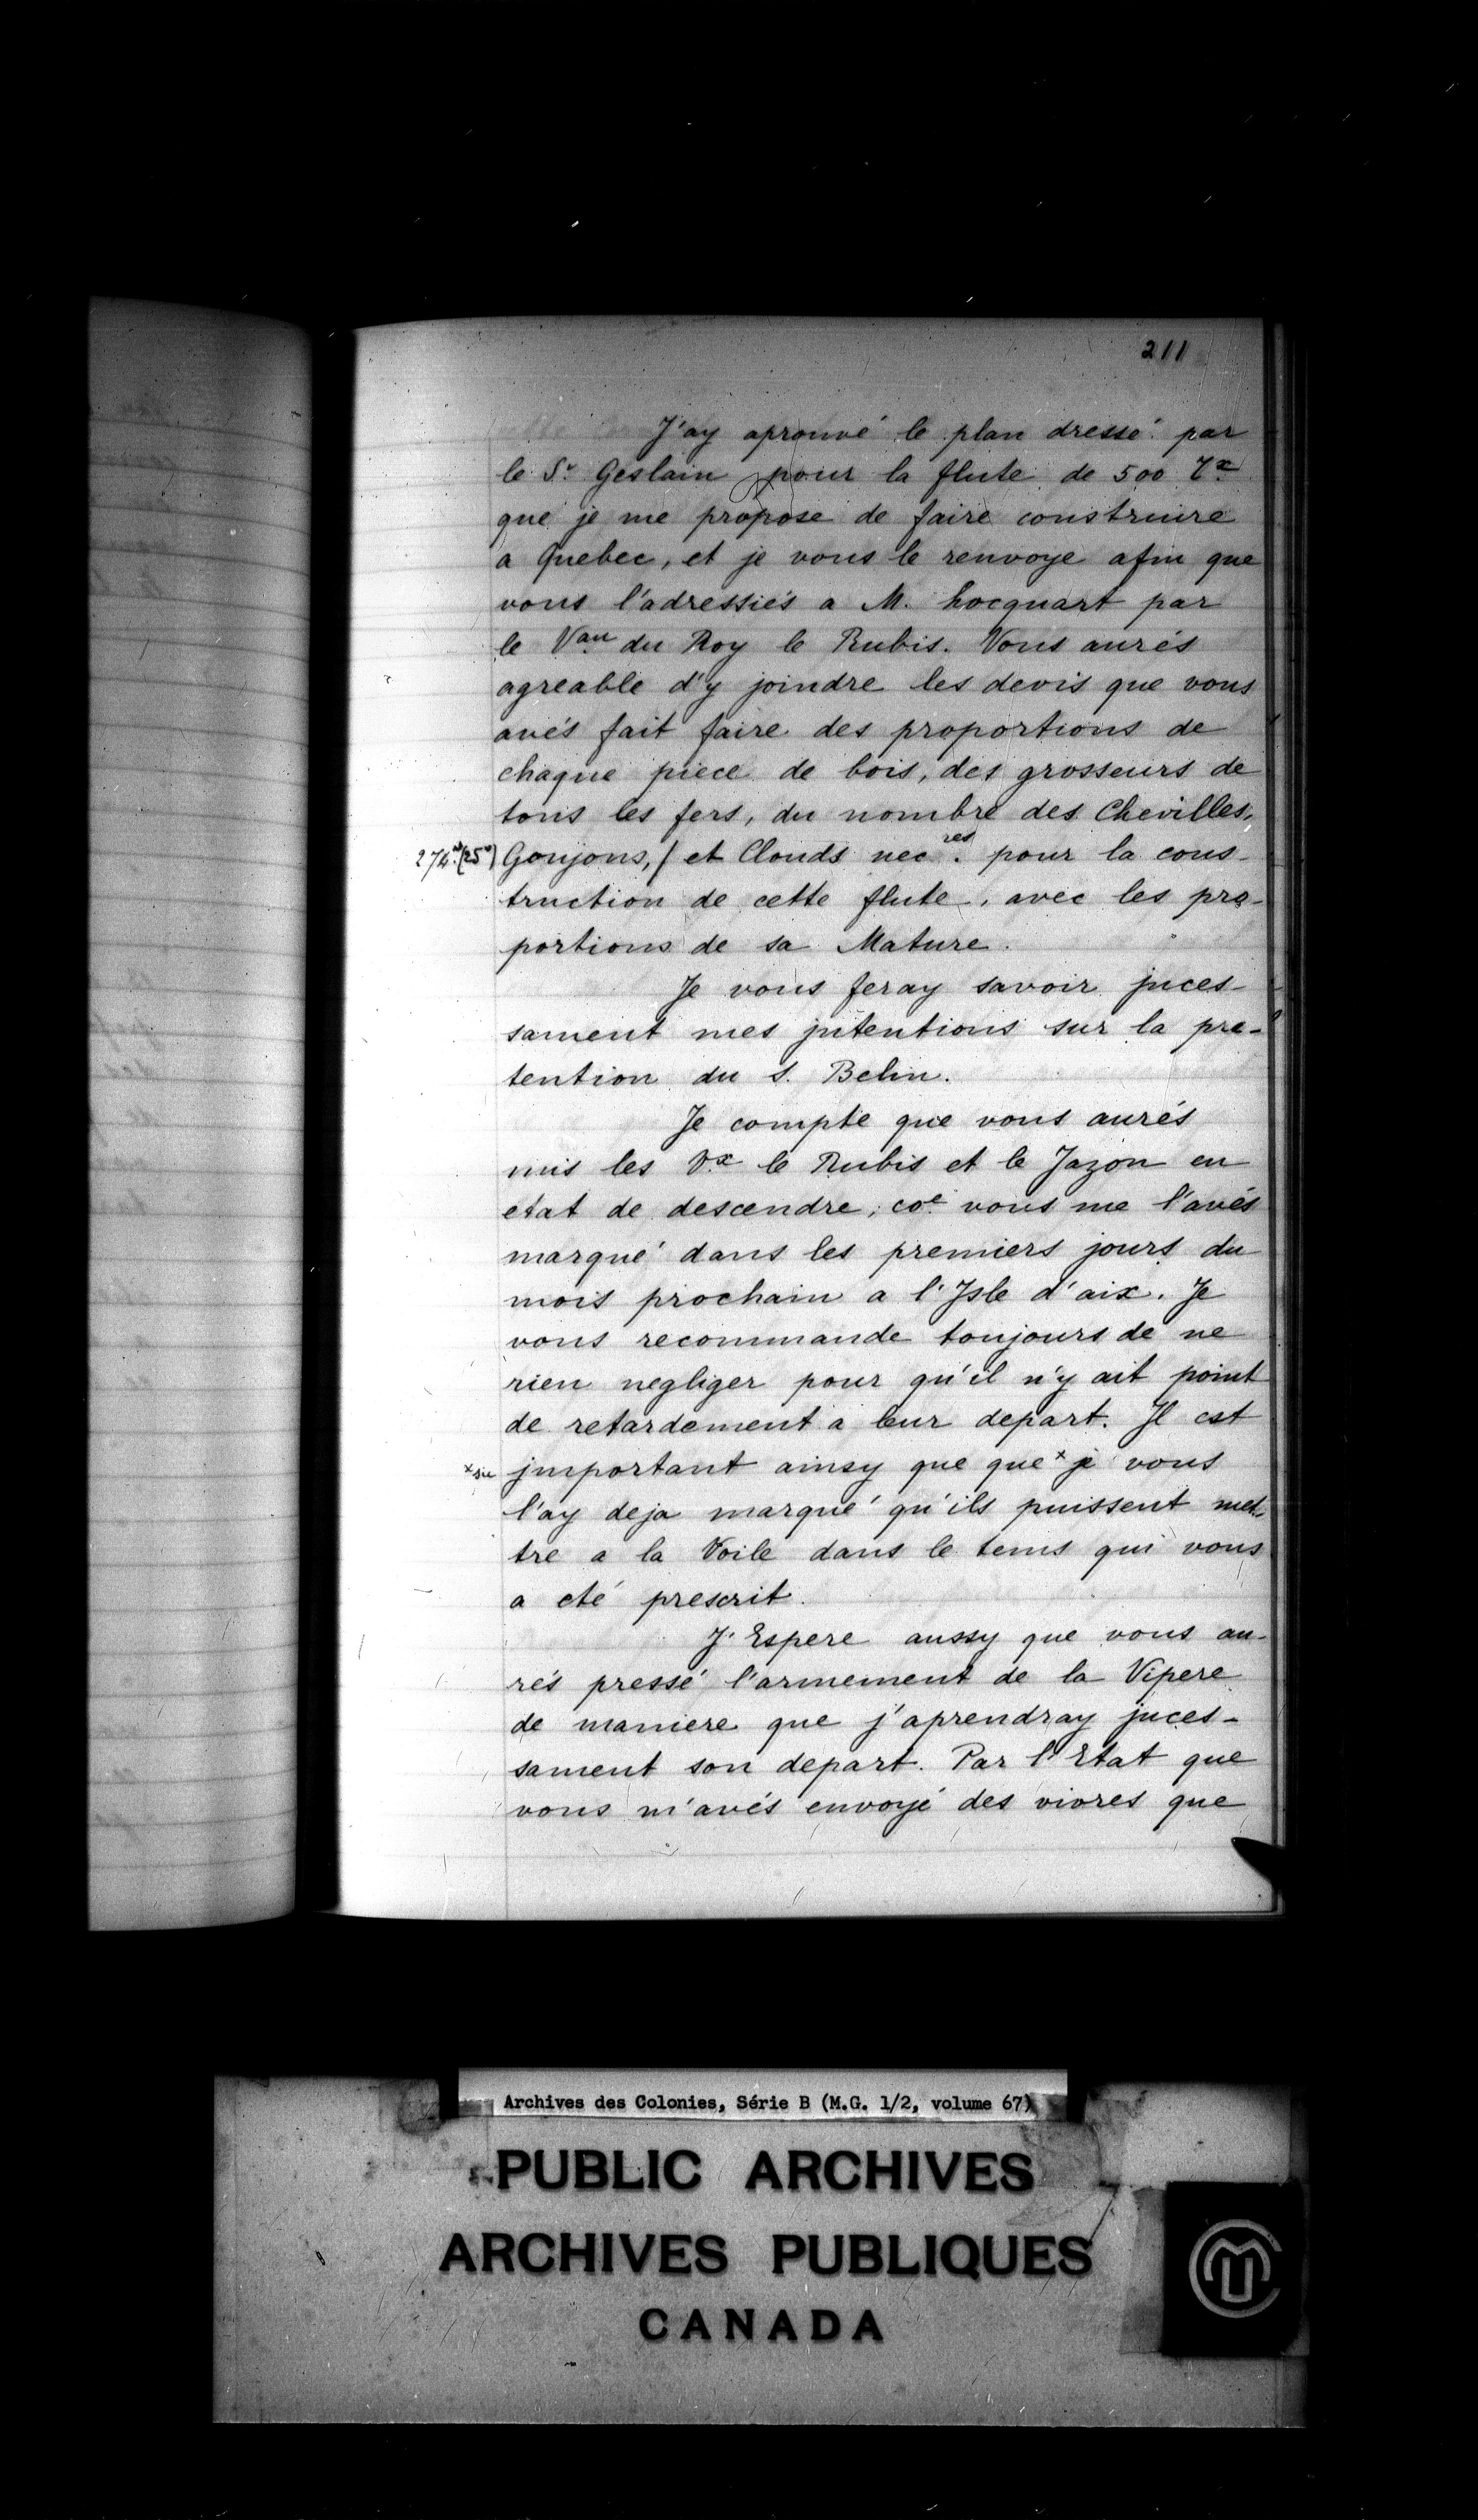 211
J'ay aprouvé le plan dressé par
le Sr Geslain pour la flute de 500 Tx
que je me propose de faire construire
a Quebec, et je vous le renvoye afin que
vous l'adressiés a M. hocquart par
le Vau du Roy le Rubis. Vous aurés
agreable d'y joindre les devis que vous
avés fait faire des proportions de
chaque piece de bois, des grosseurs de
tous les fers, du nombre des Chevilles,
Goujons, / et Clouds necres. pour la cons-
truction de cette flute, avec les pro-
portions de sa Mature.
Je vous feray savoir jnces-
sament mes jntentions sur la pre-
tention du s. Belin.
Je compte que vous aurés
mis les Vx le Rubis et le Jazon en
état de descendre, coe vous me l'avés
marqué dans les premiers jours du
mois prochain a l'Jsle d'aix. Je
vous recommande toujours de ne
rien negliger pour qu'il n'y ait point
de retardement a leur depart. Jl est
x sic jmportant ainsy que que x je vous
l'ay deja marqué qu'ils puissent met-
tre a la Voile dans le tems qui vous
a eté prescrit.
J'Espere aussy que vous au-
rés pressé l'armement de la Vipere
de maniere que j'aprendray jnces-
sament son depart. Par l'Etat que
vous m'avés envoyé des vivres que
Archives des Colonies, Série B (M.G. 1/2, volume 67)
PUBLIC ARCHIVES
ARCHIVES PUBLIQUES
CANADA